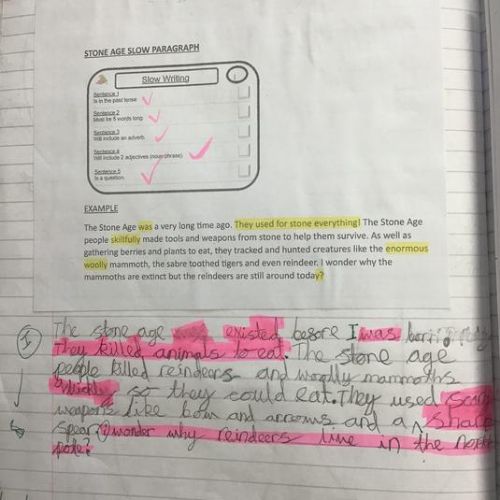 STONE AGE SLOW PARAGRAPH
Slow Writing
Sentence 1
Is in the past tense
Sentence 2
Must be 5 words long
Sentence 3
Will include an adverb.
Sentence 4
Will include 2 adjectives (noun phrase)
Sentence 5
Is a question.
EXAMPLE
The Stone Age was a very long time ago. They used for stone everything! The Stone Age
people skillfully made tools and weapons from stone to help them survive. As well as
gathering berries and plants to eat, they tracked and hunted creatures like the enormous
woolly mammoth, the sabre toothed tigers and even reindeer. I wonder why the
mammoths are extinct but the reindeers are still around today?
The stone age existed before I was born
They killed animals to eat. The stone age
people killed reindeers and woolly mammoths
so they could eat. They used
weapons like bow and arrows and a sharp
spear. I wonder why reindeers live in the north
pole?